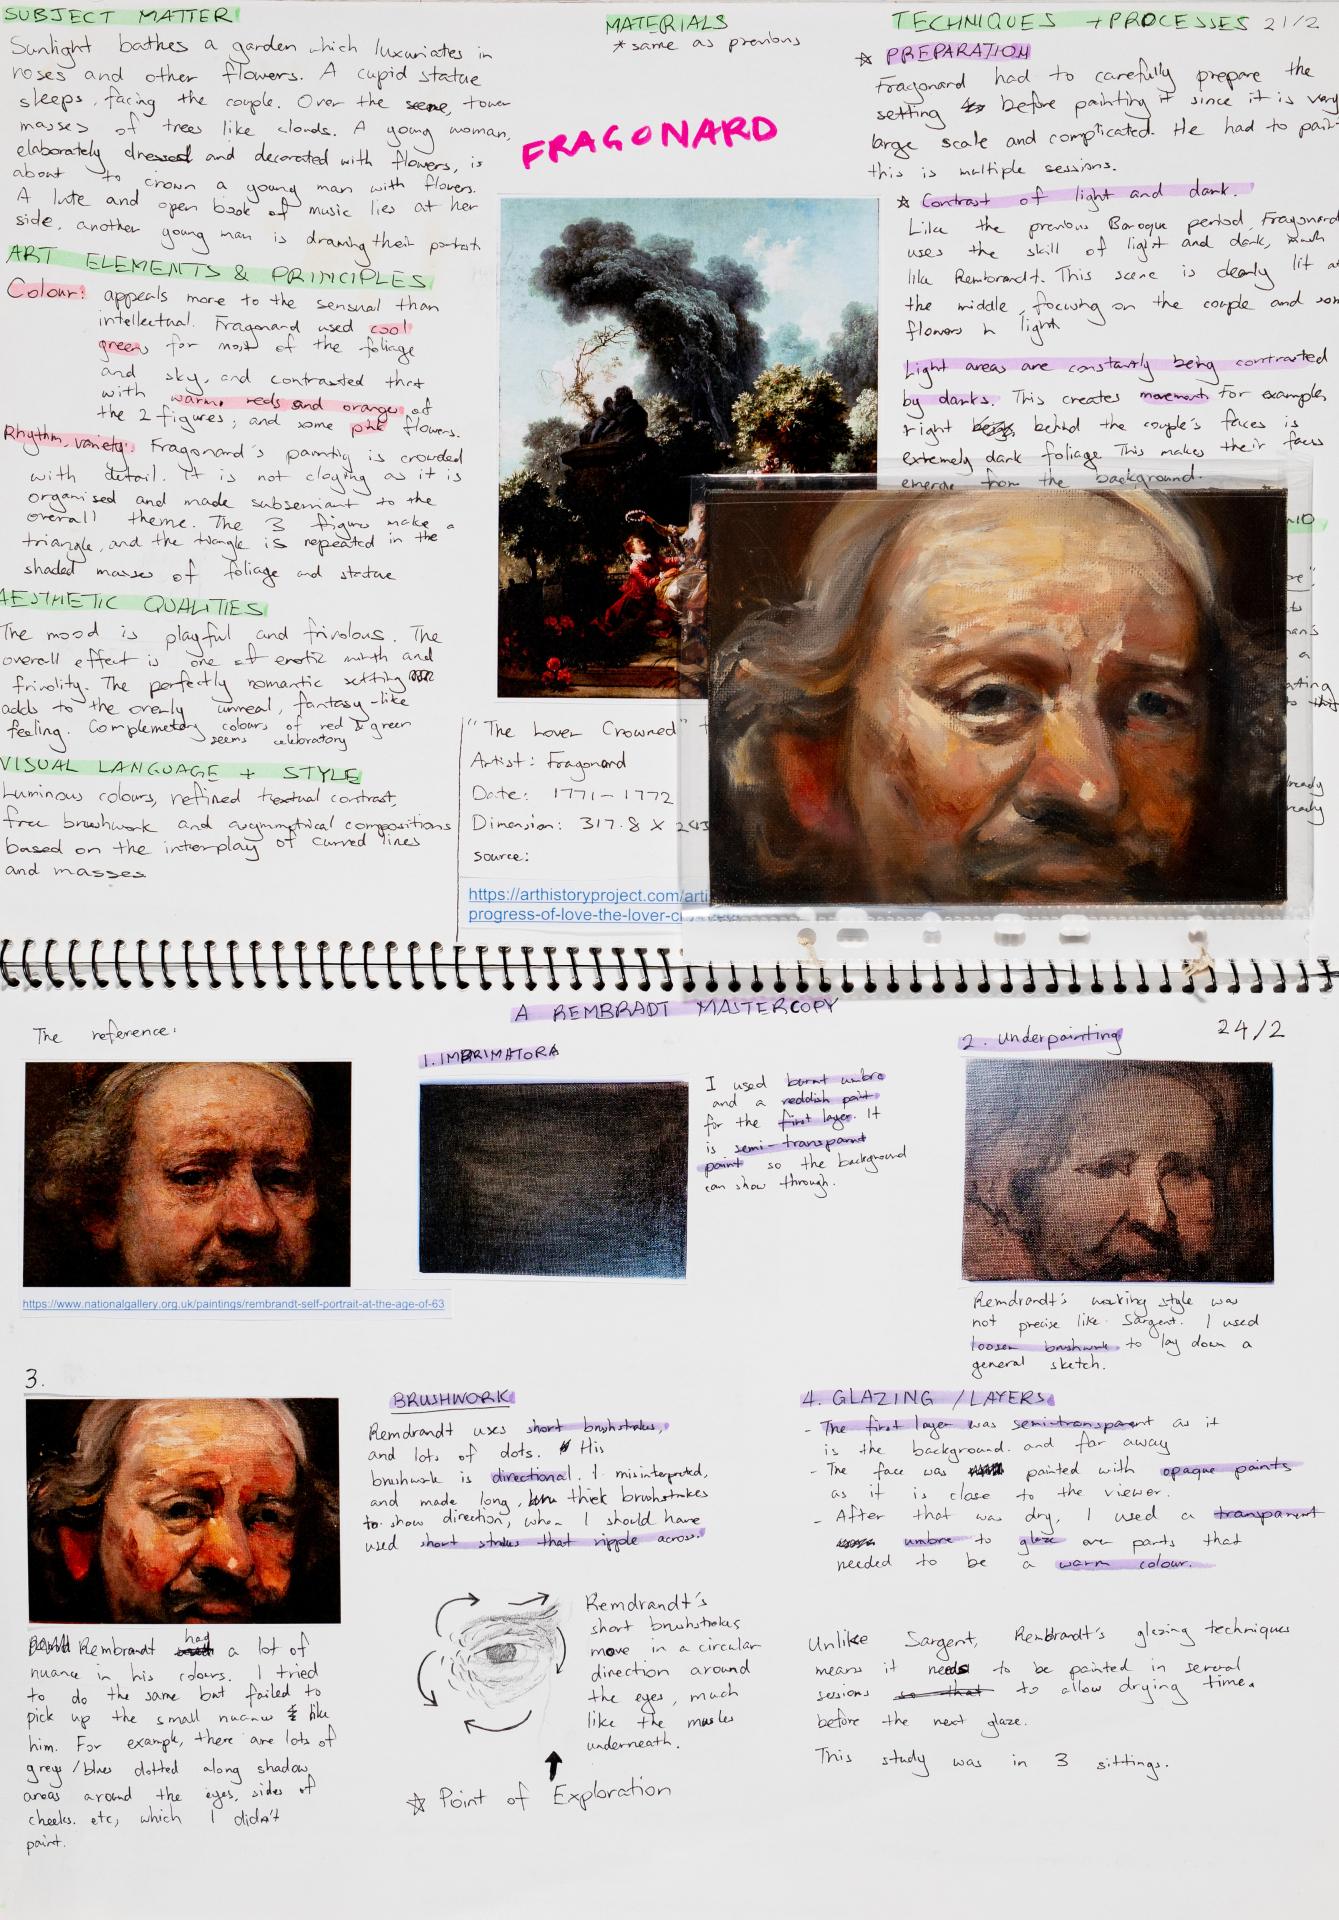 SUBJECT MATTER
Sunlight bathes a garden which luxuriates in
roses and other flowers. A cupid statue
sleeps, facing the couple. Over the scene, tower
masses of trees like clouds. A young woman,
elaborately dressed and decorated with flowers, is
about to crown a young man with flowers.
A lute and open book of music lies at her
side, another young man is drawing their portrait
ART ELEMENTS & PRINCIPLES
Colour: appeals more to the sensual than
intellectual. Fragonard used cool
greens for most of the foliage
and sky, and contrasted that
with warm reds and oranges of
the 2 figures; and some pink flowers.
Rhythm, variety: Fragonard's painting is crowded
with detail. It is not cloying as it is
organised and made subservient to the
overall theme. The 3 figure make a
triangle, and the triangle is repeated in the
shaded masses of foliage and statue
AESTHETIC QUALITIES
The mood is playful and frivolous. The
overall effect is one of erotic mirth and
frivolity. The perfectly romantic setting
adds to the overly unreal, fantasy-like
feeling. Complemetary colours of red & green
seems celebratory
VISUAL LANGUAGE + STYLE
Luminous colours, refined textual contrast,
free brushwork and asymmetrical compositions
based on the interplay of curved lines
and masses
MATERIALS
*same as previous
FRAGONARD
"The Lover Crowned"
Artist: Fragonard
Date: 1771-1772
Dimension: 317.8 x 243
source:
https://arthistoryproject.com/arti
progress-of-love-the-lover-crowned/
TECHNIQUES + PROCESSES 21/2
☆ PREPARATION
Fragonard had to carefully prepare the
setting before painting it since it is very
large scale and complicated. He had to pain
this is multiple sessions.
☆ Contrast of light and dark.
Like the previous Baroque period, Fragonard
uses the skill of light and dark, much
like Rembrandt. This scene is clearly lit at
the middle, focusing on the couple and som
flowers in light
Light areas are constantly being contrasted
by darks. This creates movement. For example,
right behind the couple's faces is
extremely dark foliage. This makes their faces
emerge from the background.
A REMBRADT MASTERCOPY
24/2
The reference:
https://www.nationalgallery.org.uk/paintings/rembrandt-self-portrait-at-the-age-of-63
1. IMPRIMATORA
I used burnt umbre
and a reddish paint
for the first layer. It
is semi-transparent
paint so the background
can show through.
2. Underpainting
Remdrandt's working style was
not precise like Sargent. I used
looser brushwork to lay down a
general sketch.
3.
Rembrandt had a lot of
nuance in his colours. I tried
to do the same but failed to
pick up the small nuance like
him. For example, there are lots of
greys/blues dotted along shadow
areas around the eyes, sides of
cheeks. etc, which I didn't
paint.
BRUSHWORK
Remdrandt uses short brushstrokes,
and lots of dots. His
brushwork is directional. I misinterpreted,
and made long, thick brushstrokes
to show direction, when I should have
used short strokes that ripple across.
Remdrandt's
short brushstrokes
move in a circular
direction around
the eyes, much
like the muscles
underneath.
☆ Point of Exploration
4. GLAZING / LAYERS
- The first layer was semi-transparent as it
is the background. and far away
- The face was painted with opaque paints
as it is close to the viewer.
- After that was dry, I used a transparent
umbre to glaze over parts that
needed to be a warm colour.
Unlike Sargent, Rembrandt's glazing techniques
means it needs to be painted in several
sessions so that to allow drying time.
before the next glaze.
This study was in 3 sittings.